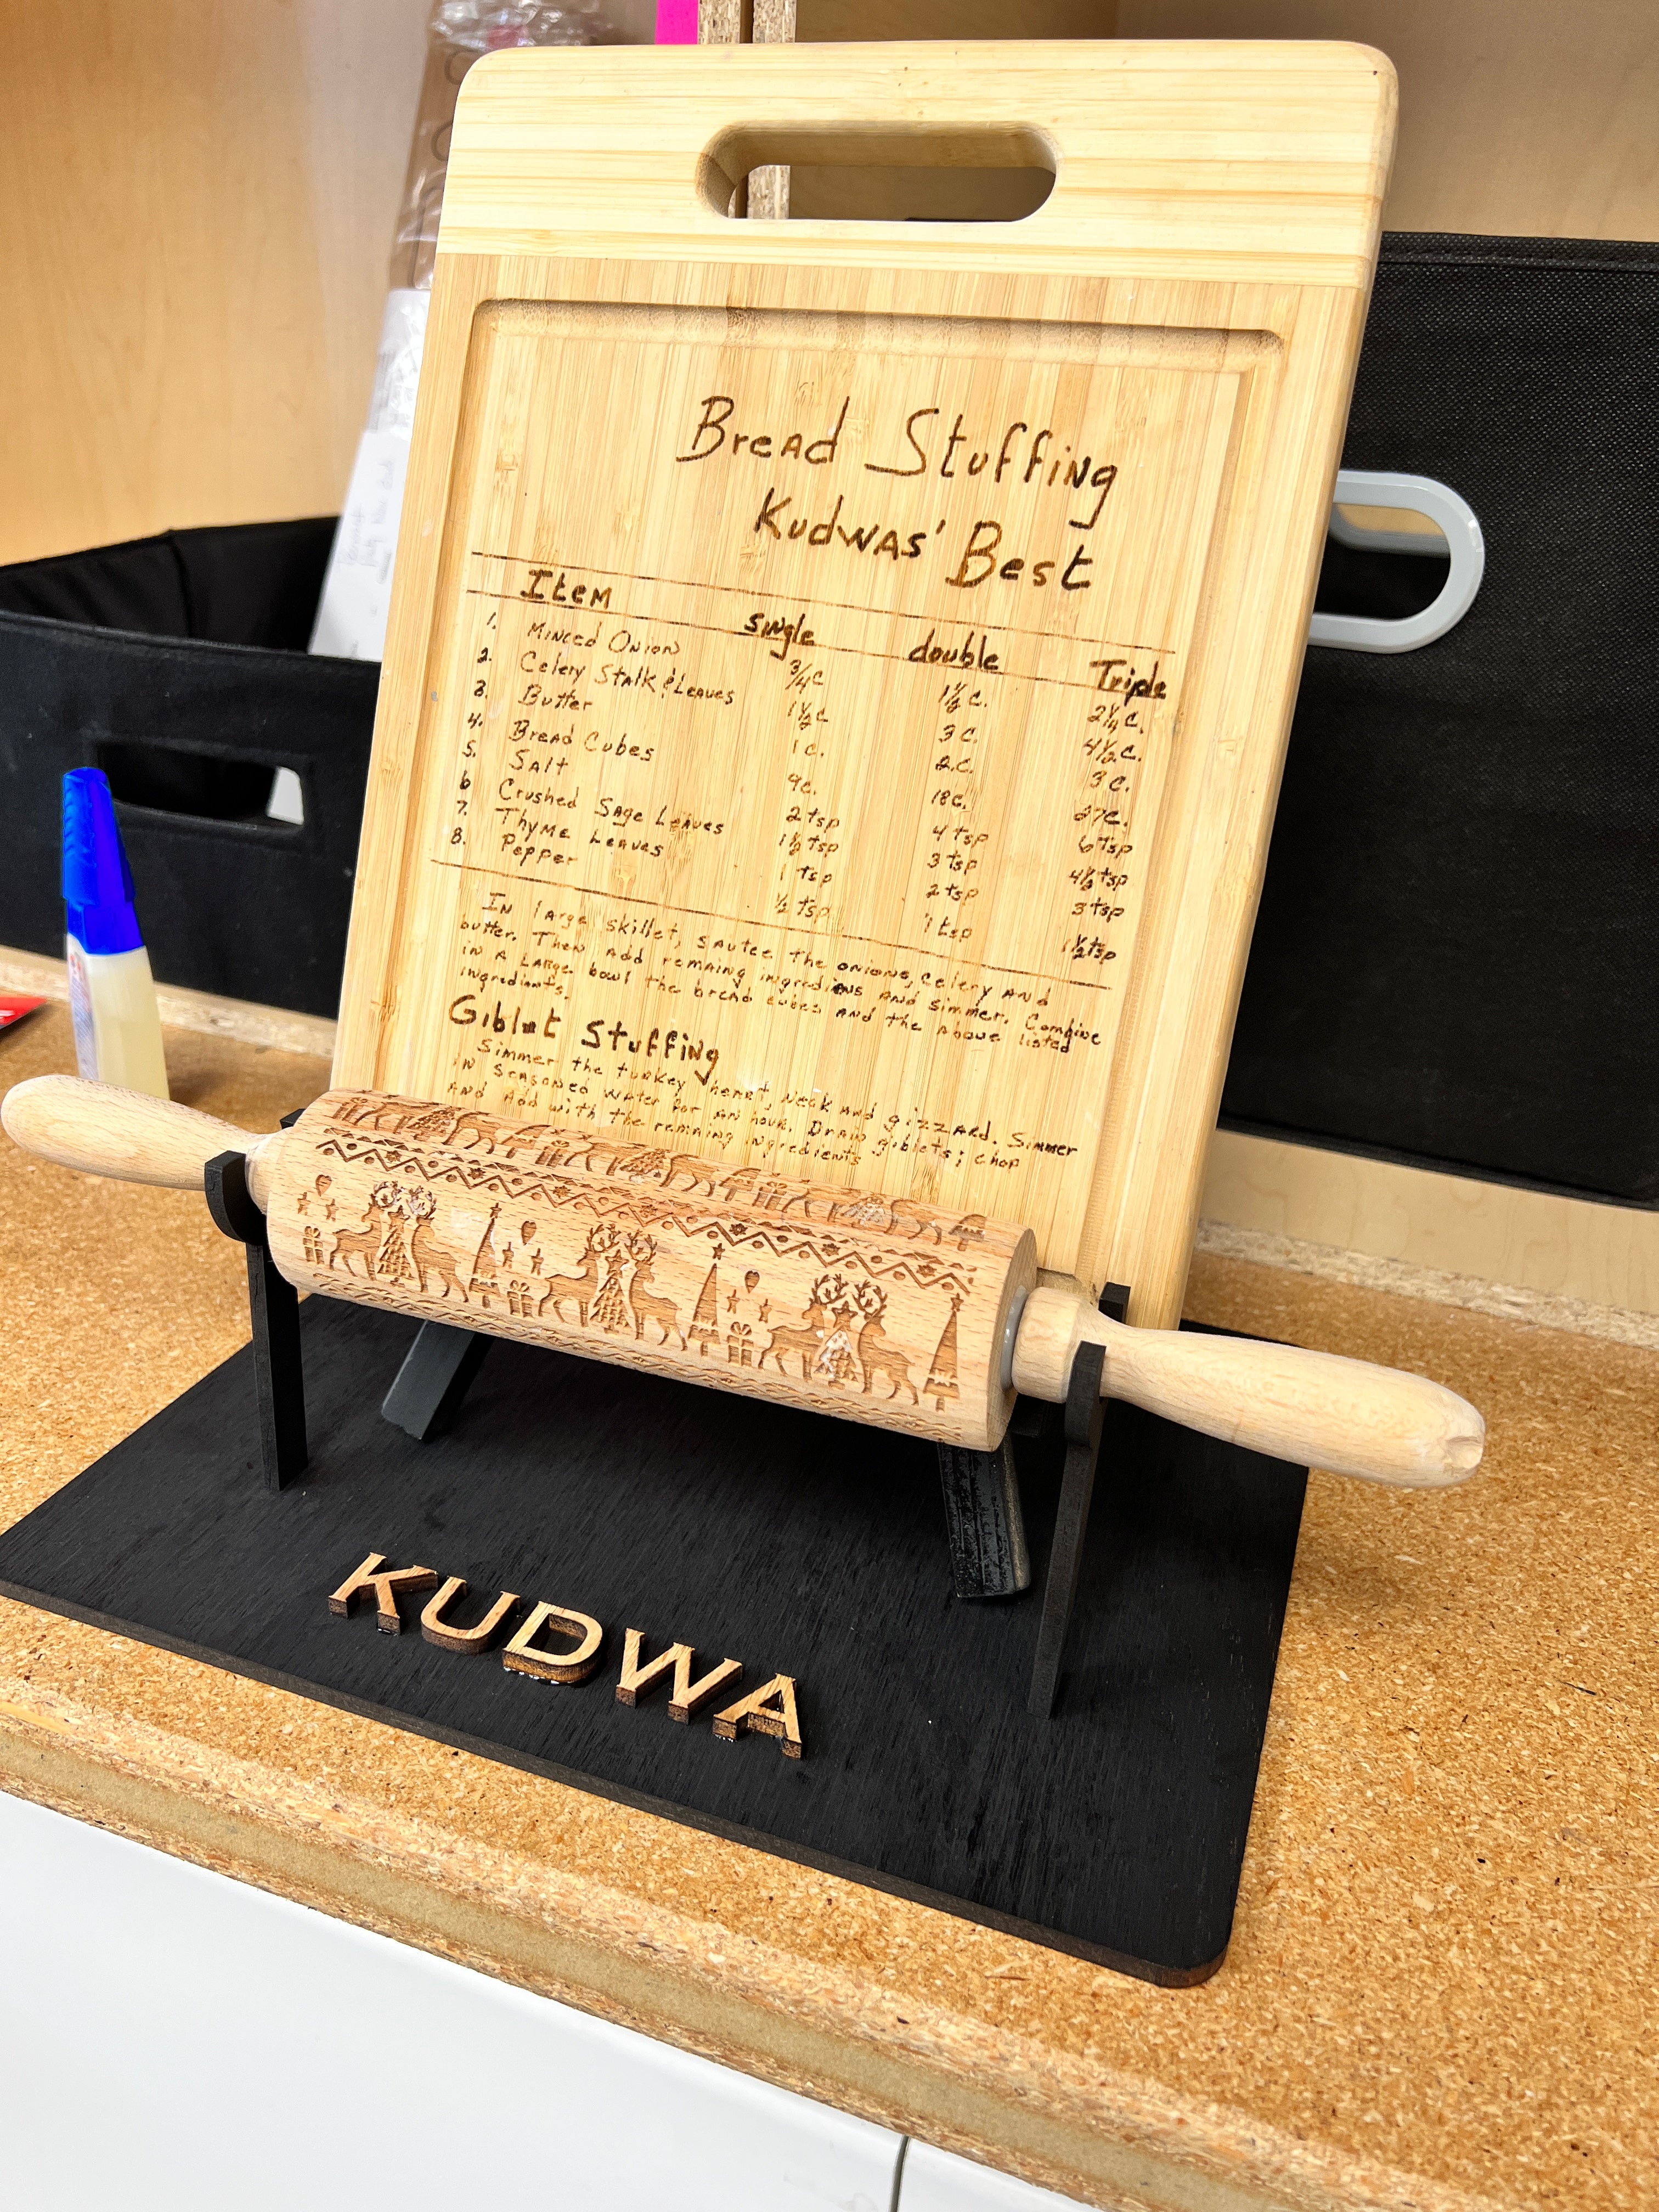 Bread Stuffing
Kudwas' Best
Item single double Triple
1. Minced Onion 3/4 c 1 1/2 c. 2 1/4 c.
2. Celery Stalk & Leaves 1 1/2 c 3 c. 4 1/2 c.
3. Butter 1 c. 2 c. 3 c.
4. Bread Cubes 9c. 18c. 27c.
5. Salt 2 tsp 4 tsp 6 tsp
6 Crushed Sage Leaves 1 1/2 tsp 3 tsp 4 1/2 tsp
7. Thyme Leaves 1 tsp 2 tsp 3 tsp
8. Pepper 1/2 tsp 1 tsp 1 1/2 tsp
In large skillet, sautee the onions, celery and
butter. Then add remaing ingrediens and simmer. Combine
in a large bowl the bread cubes and the above listed
ingrediants.
Giblet Stuffing
Simmer the turkey heart, neck and gizzard. Simmer
in seasoned water for an hour. Drain giblets; chop
and add with the remaing ingredients
KUDWA